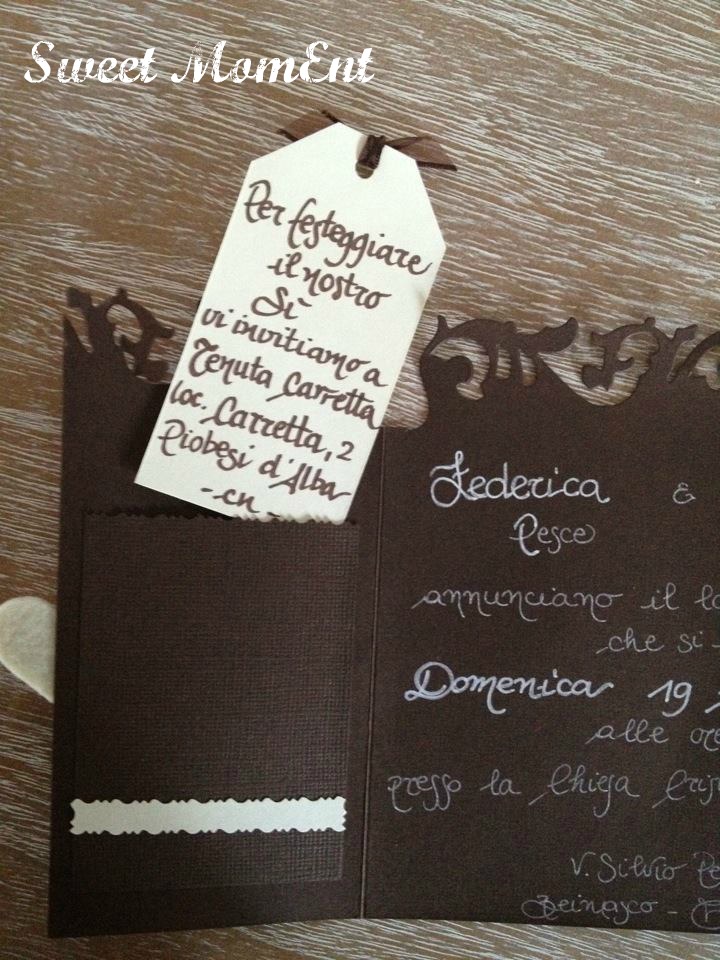 Sweet MomEnt
Per festeggiare
il nostro
Sì
vi invitiamo a
Tenuta Carretta
loc. Carretta, 2
Piobesi d'Alba
- CN -
Federica &
Pesce
annunciano il lo
che si
Domenica 19
alle ore
presso la Chiesa Cris
V. Silvio Pe
Beinasco -